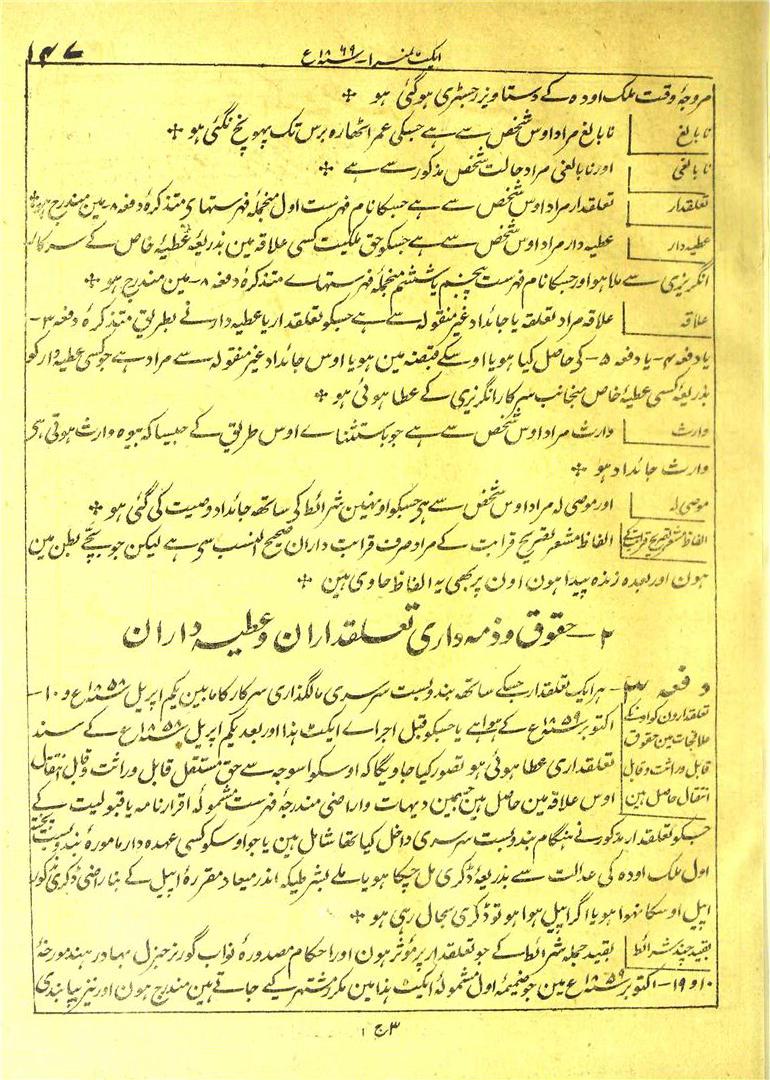 ایکٹ نمبر ۱ - سنہ ۱۸۶۹ ع
۱۴۷
مروجۂ وقت ملک اودہ کے دستاویز رجسٹری ہوگئی ہو ✢
نابالغ
نابالغ مراد اوس شخص سے ہے جسکی عمر اٹھارہ برس تک پہونچ نگئی ہو ✢
نابالغی
اور نابالغی مراد حالت شخص مذکور سے ہے ✢
تعلقدار
تعلقدار مراد اوس شخص سے ہے جسکا نام فہرست اول منجملۂ فہرستہای متذکرۂ دفعہ ۸ - مین مندرج ہو ✢
عطیہ دار
عطیہ دار مراد اوس شخص سے ہے جسکو حق ملکیت کسی علاقہ مین بذریعۂ عطیۂ خاص کے سرکار
انگریزی سے ملا ہو اور جسکا نام فہرست پنجم یا ششم منجملہ فہرستہاے متذکرۂ دفعہ ۸ - مین مندرج ہو ✢
علاقہ
علاقہ مراد تعلقہ یا جائداد غیر منقولہ سے ہے جسکو تعلقدار یا عطیہ دار نے بطریق متذکرۂ دفعہ ۳ -
یا دفعہ ۴ - یا دفعہ ۵ - کی حاصل کیا ہو یا اوسکے قبضہ مین ہو یا اوس جائداد غیر منقولہ سے مراد ہے جو کسی عطیہ دار کو
بذریعۂ کسی عطیۂ خاص منجانب سرکار انگریزی کے عطا ہوئی ہو ✢
وارث
وارث مراد اوس شخص سے ہے جو باستثناے اوس طریق کے جیسا کہ بیوہ وارث ہوتی ہی
وارث جائداد ہو ✢
موصی لہ
اور موصی لہ مراد اوس شخص سے ہی جسکو اونہین شرائط کی ساتھ جائداد وصیت کی گئی ہو ✢
الفاظ مشعر تصریح قرابت کے
الفاظ مشعر تصریح قرابت کے مراد صرف قرابت داران صحیح النسب سی ہے لیکن جو بچے بطن مین
ہون اور بعدہ زندہ پیدا ہون اون پر بھی یہ الفاظ حاوی ہین ✢
۲ - حقوق و ذمہ داری تعلقداران و عطیہ داران
دفعہ ۳ - ہر ایک تعلقدار جسکے ساتھ بندوبست سرسری مالگذاری سرکار کا مابین یکم اپریل سنہ ۱۸۵۸ ع و ۱۰ -
تعلقدارون کو اونکے
علاقجات مین حقوق
قابل وراثت و قابل
انتقال حاصل ہین
اکتوبر سنہ ۱۸۵۹ ع کے ہوا ہے یا جسکو قبل اجراے ایکٹ ہذا اور بعد یکم اپریل سنہ ۱۸۵۸ ع کے سند
تعلقداری عطا ہوئی ہو تصور کیا جاویگا کہ اوسکو اسوجہ سے حق مستقل قابل وراثت و قابل انتقال
اوس علاقہ مین حاصل ہین جسمین دیہات و اراضی مندرجۂ فہرست مشمولۂ اقرارنامہ یا قبولیت کے
جسکو تعلقدار مذکور نے ہنگام بندوبست سرسری داخل کیا تھا شامل ہین یا جو اوسکو کسی عہدہ دار مامورۂ بندوبست پختہ
اول ملک اودہ کی عدالت سے بذریعۂ ڈگری مل چکا ہو یا ملے بشرطیکہ اندر میعاد مقررۂ اپیل کے بناراضی ڈگری مذکور
اپیل اوسکا نہوا ہو یا اگر اپیل ہوا ہو تو ڈگری بحال رہی ہو ✢
بقید چند شرائط
بقید جملہ شرائط کے جو تعلقدار پر مؤثر ہون اور احکام مصدورۂ نواب گورنر جنرل بہادر ہند مورخۂ
۱۰ و ۱۹ - اکتوبر سنہ ۱۸۵۹ ع مین جو ضمیمۂ اول مشمولۂ ایکٹ ہذا مین مکرر مشتہر کیے جاتے ہین مندرج ہون اور نیز بپابندی
۳ ج ۱